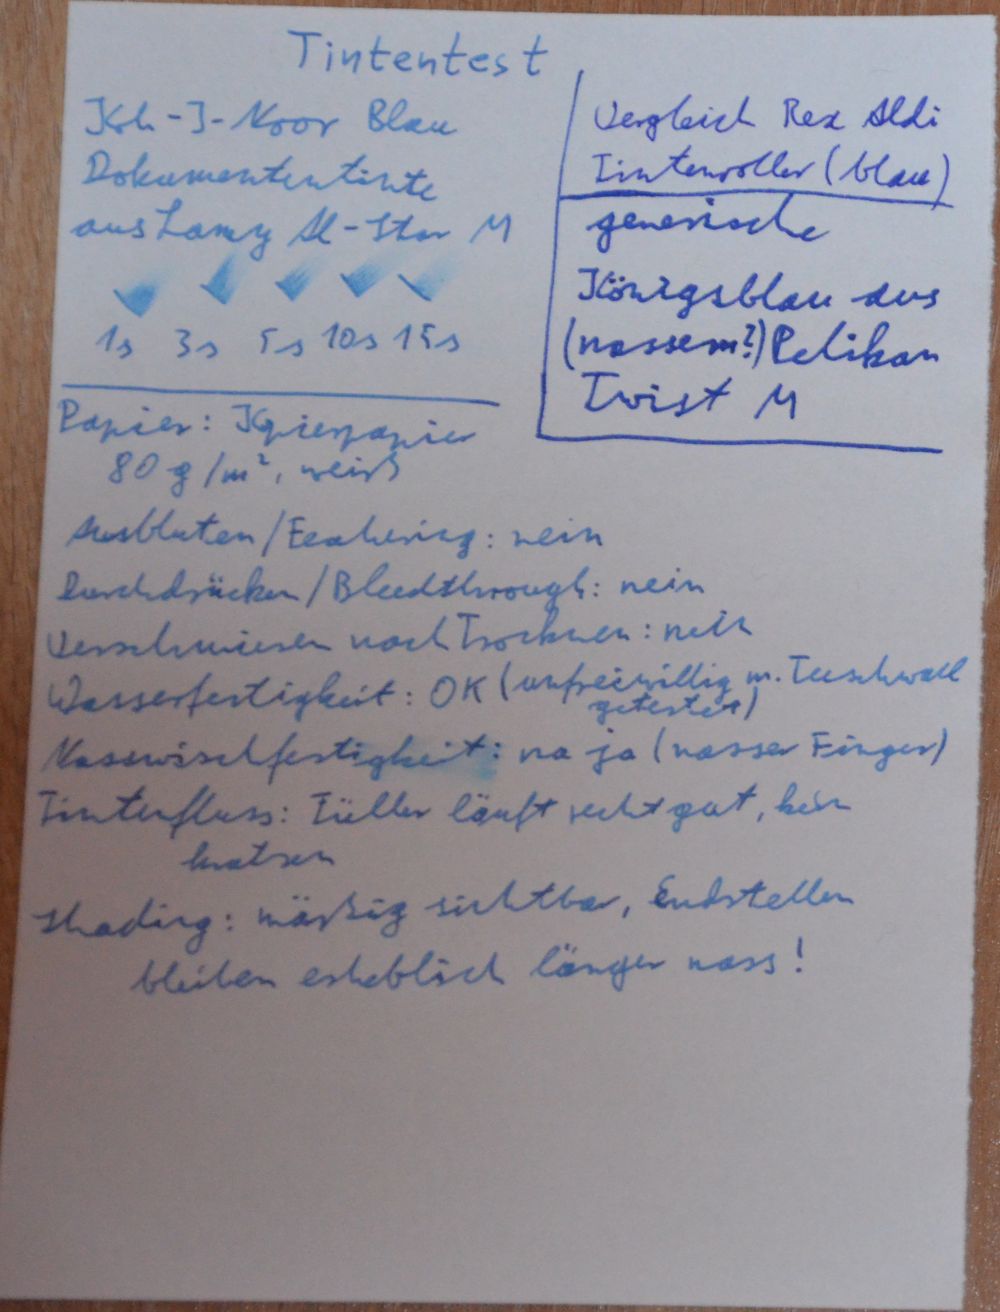 Tintentest
Koh-I-Noor Blau
Dokumententinte
aus Lamy Al-Star M
1s 3s 5s 10s 15s
Vergleich Rex Aldi
Tintenroller (blau)
generische
Königsblau aus
(nassem?) Pelikan
Twist M
Papier: Kopierpapier
80 g/m², weiß
Ausbluten/Feathering: nein
Durchdrücken/Bleedthrough: nein
Verschmieren nach Trocknen: nein
Wasserfestigkeit: OK (unfreiwillig m. Teeschwall
getestet)
Nasswischfestigkeit: na ja (nasser Finger)
Tintenfluss: Füller läuft recht gut, kein
kratzen
Shading: mäßig sichtbar, Endstellen
bleiben erheblich länger nass!